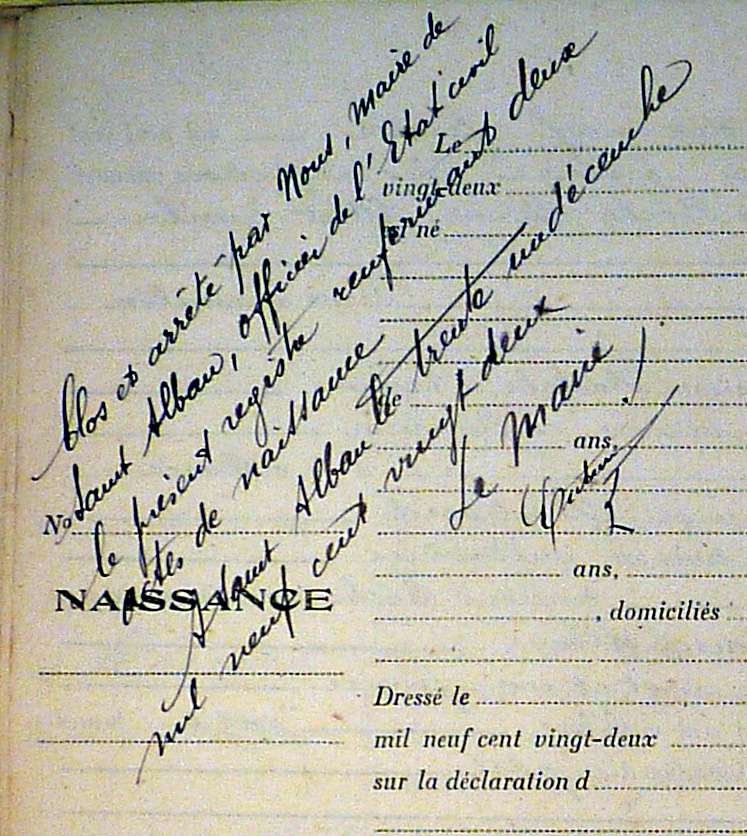 Clos et arrêté par Nous, Maire de
Saint Alban, officier de l'Etat civil
le présent registre renfermant deux
actes de naissance
Saint Alban le trente un décembre
mil neuf cent vingt deux
Le Maire,
Le
vingt-deux
né
de
ans,
No
ans,
NAISSANCE
, domiciliés
Dressé le
mil neuf cent vingt-deux
sur la déclaration d